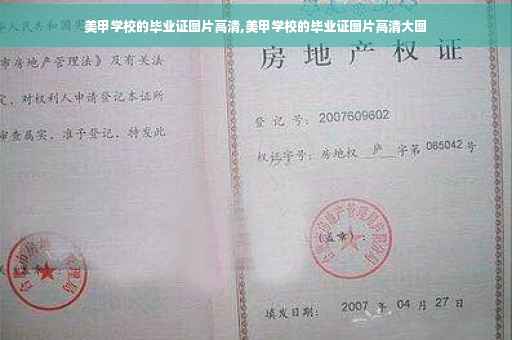 美甲学校的毕业证图片高清,美甲学校的毕业证图片高清大图
市房地产管理法》及有关法
定，对权利人申请登记本证所
审查属实，准予登记，特发此
房地产权证
登 记 号：2007609602
权证字号：房地权 庐 字第 085042 号
（盖章）：
填发日期： 2007 年 04 月 27 日